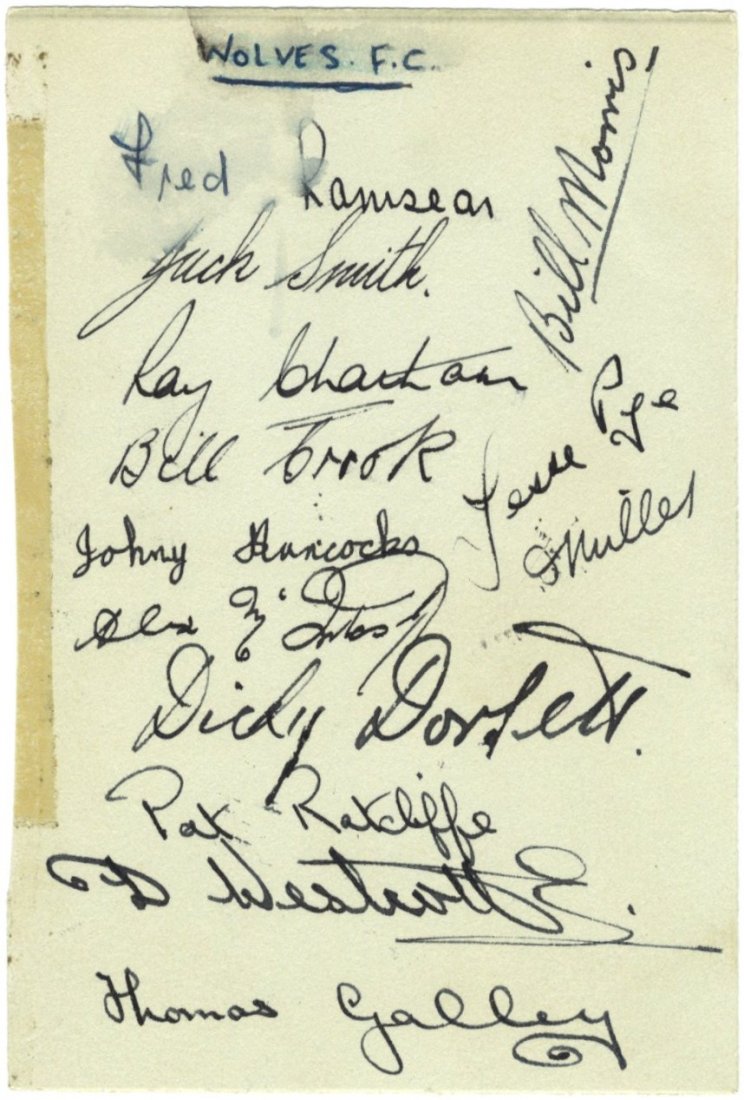 WOLVES. F.C.
Fred Ramscar
Jack Smith.
Ray Chatham
Bill Crook
Johny Hancocks
Alex Mc Intosh
Dicky Dorsett.
Pat Ratcliffe
D Westcott
Thomas Galley
Bill Morris
Jesse Pye
Miller